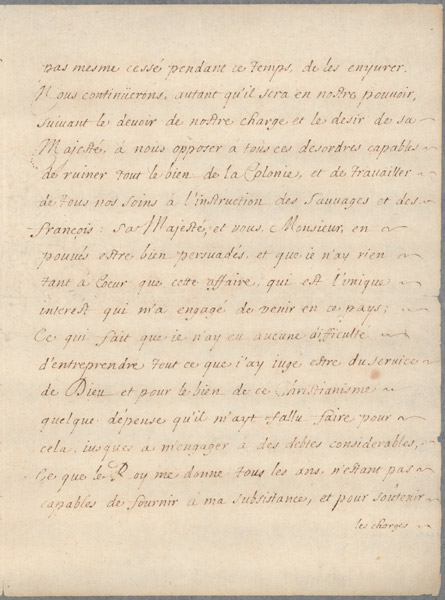 pas mesme cessé pendant ce Temps, de les enyurer.
Nous continüerons, autant qu'il sera en nostre pouvoir,
suivant le devoir de nostre charge et le desir de sa
Majesté, à nous opposer a tous ces desordres capables
de ruiner tout le bien de la Colonie, et de travailler
de tous nos soins à l'instruction des Sauvages et des
françois: sa Majesté, et vous, Monsieur, en
pouvés estre bien persuadés, et que ie n'ay rien
tant à Cœur que cette affaire, qui est l'unique
interest qui m'a engagé de venir en ce pays;
Ce qui fait que ie n'ay eu aucune difficulté
d'entreprendre tout ce que i'ay iugé estre du service
de Dieu et pour le bien de ce Christianisme
quelque dépense qu'il m'ayt fallu faire pour
cela, iusques à m'engager à des debtes considerables,
Ce que le Roy me donne tous les ans, n'estant pas
capables de fournir à ma subsistance, et pour soutenir
les charges